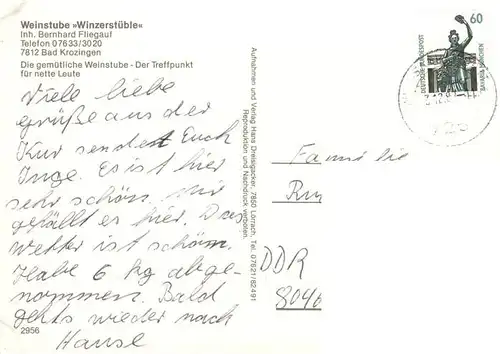 Weinstube »Winzerstüble«
Inh. Bernhard Fliegauf
Telefon 07633/3020
7812 Bad Krozingen
Die gemütliche Weinstube - Der Treffpunkt
für nette Leute
Viele liebe
grüße aus der
Kur sendet Euch
Inge. Es ist hier
sehr schön. Mir
gefällt es hier. Das
Wetter ist schöm.
Habe 6 kg abge-
nommen. Bald
gehts wieder nach
Hause
2956
Aufnahmen und Verlag Hans Dreisigacker, 7850 Lörrach, Tel. 07621/82491
Reproduktion und Nachdruck verboten.
60
DEUTSCHE BUNDESPOST
BAVARIA MÜNCHEN
Familie
DDR